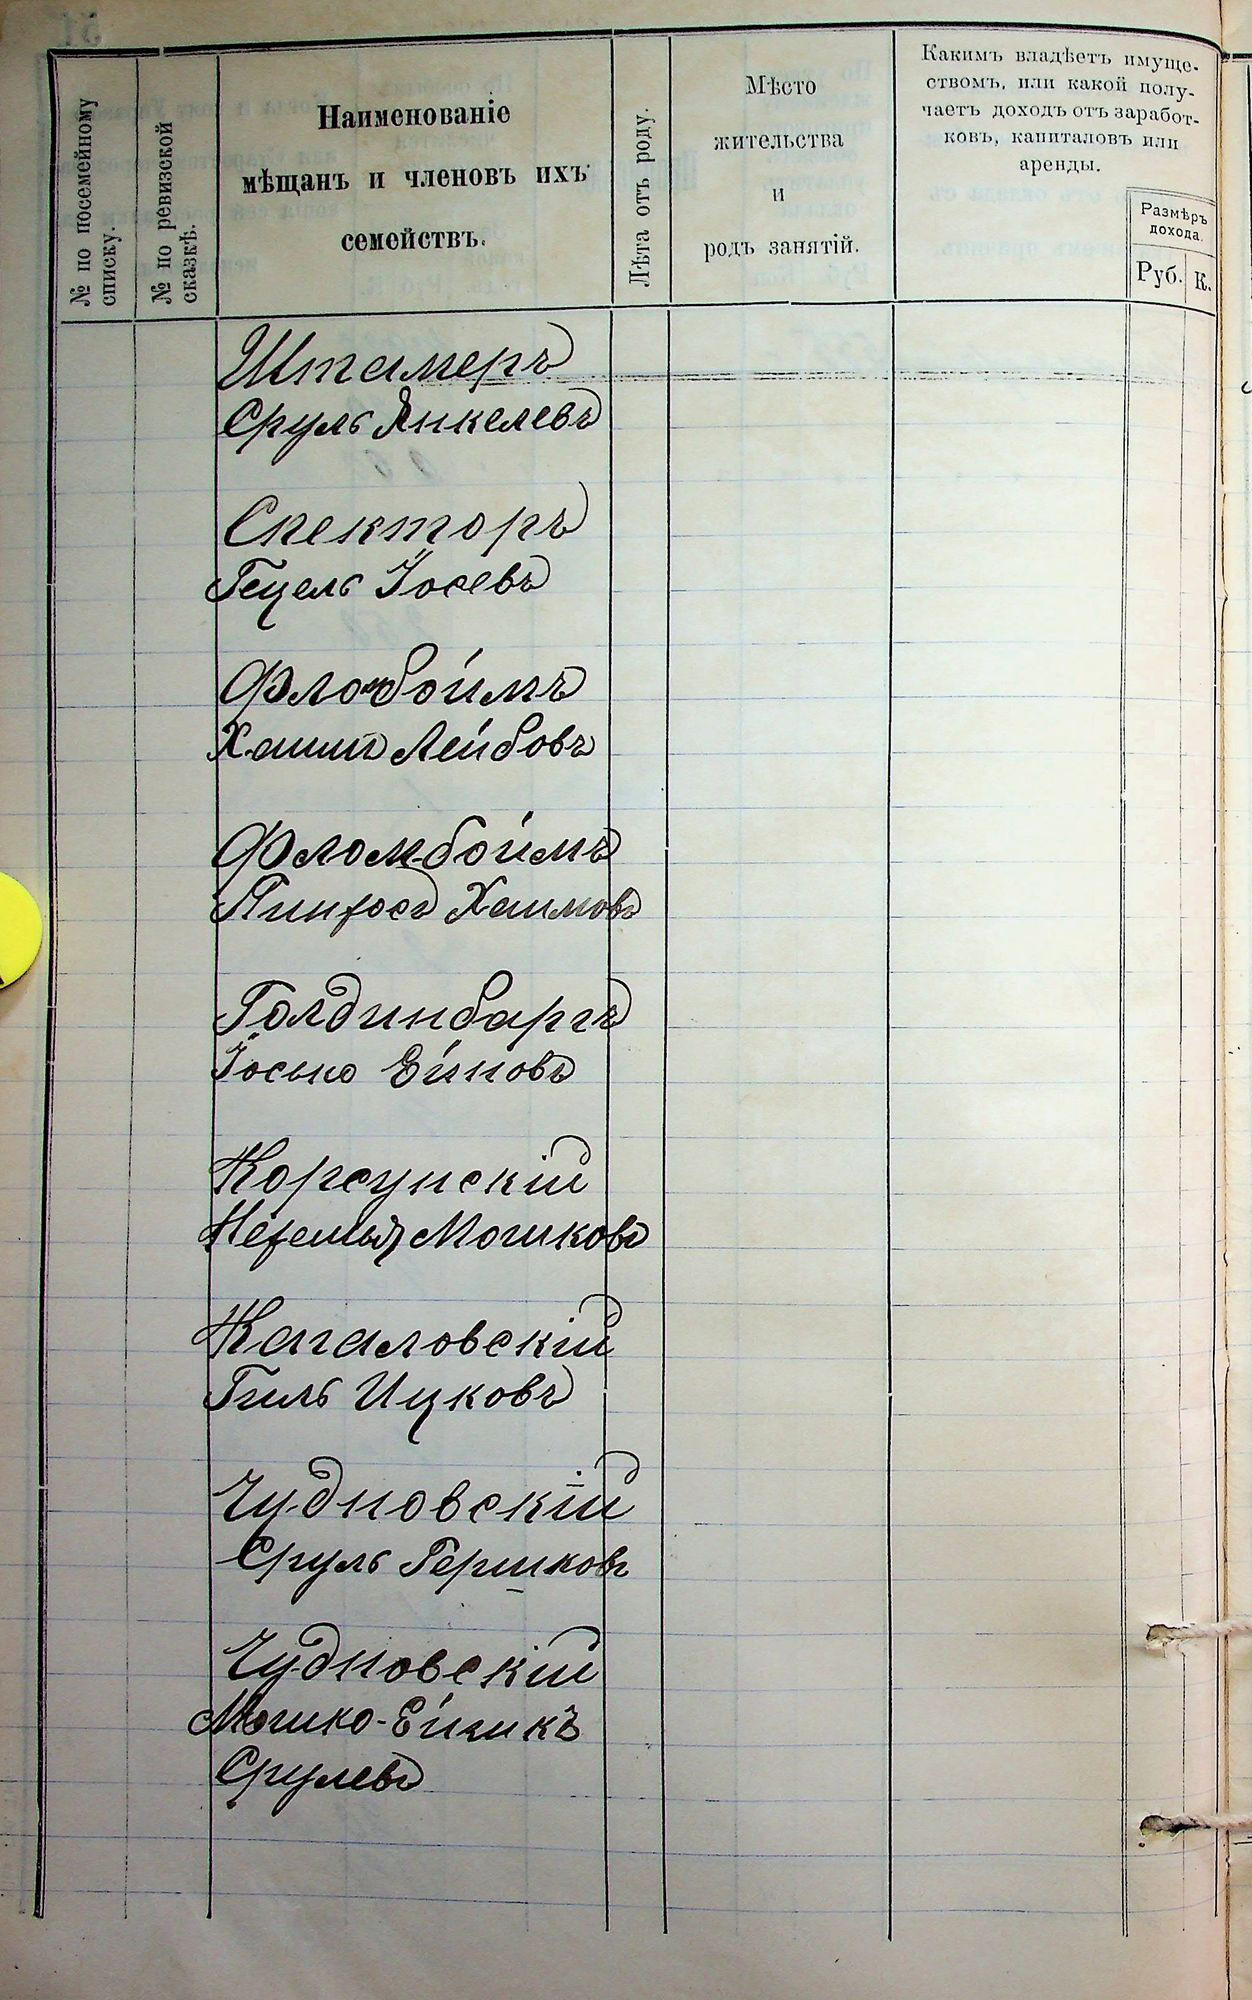 № по посемейному
списку.
№ по ревизской
сказкѣ.
Наименованіе
мѣщанъ и членовъ ихъ
семействъ.
Лѣта отъ роду.
Мѣсто
жительства
и
родъ занятій.
Какимъ владѣетъ имуще-
ствомъ, или какой полу-
чаетъ доходъ отъ заработ-
ковъ, капиталовъ или
аренды.
Размѣръ
дохода.
Руб.
К.
Штамеръ
Сруль Янкелевъ
Спекторъ
Гецель Іосевъ
Фломбоймъ
Хаимъ Лейбовъ
Фломбоймъ
Пинхосъ Хаимовъ
Голдинбаргъ
Іосько Ейновъ
Корсунскій
Нехемья Мошковъ
Кагаловскій
Гиль Ицковъ
Чудновскій
Сруль Гершковъ
Чудновскій
Мошко-Ейзикъ
Срулевъ